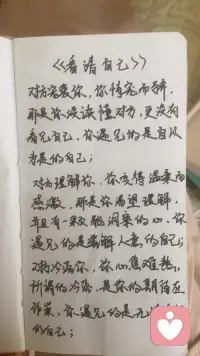 《看清自己》
对方宠爱你,你恃宠而骄,
那是你没读懂对方,更没有
看见自己,你遇见的是自以
为是的自己;
对方理解你,你变得温柔而
感激,那是你渴望理解,
并且有一颗能洞察的心,你
遇见的是善解人意的自己;
对方冷落你,你心焦难熬,
所谓的冷落,是你的期待在
作祟,你遇见的是无
的自己;